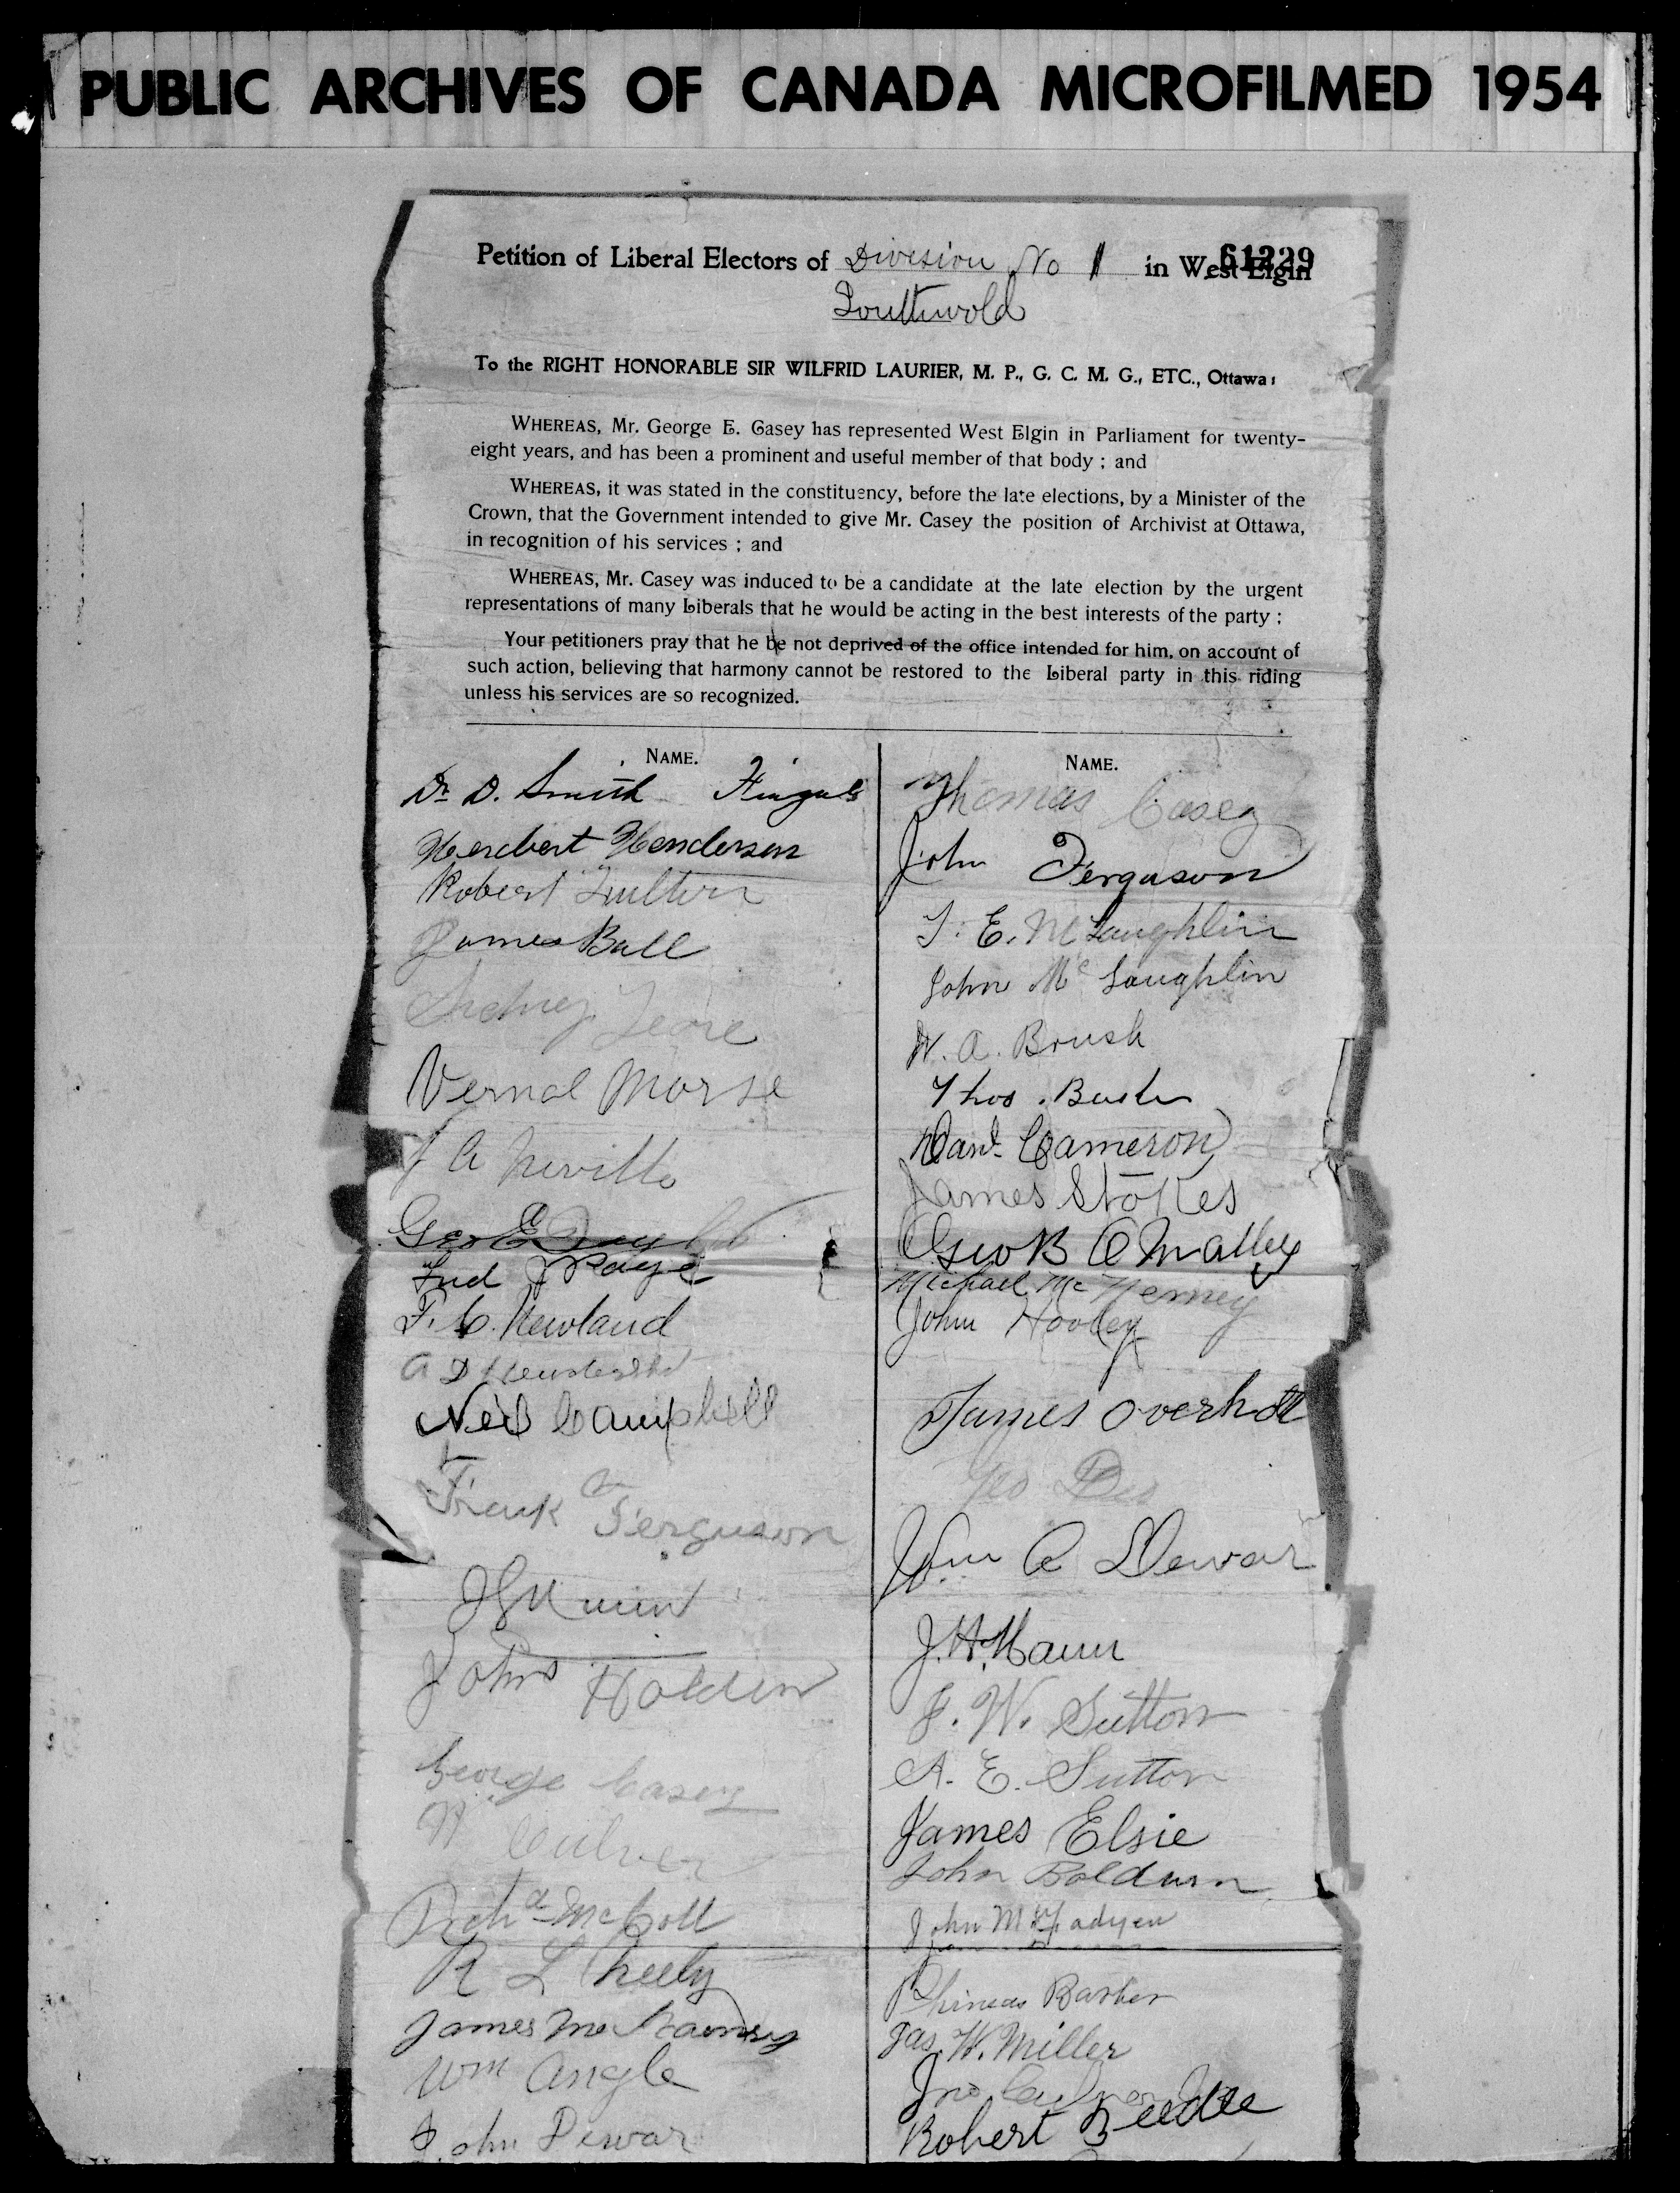 PUBLIC ARCHIVES OF CANADA MICROFILMED 1954
61229
Petition of Liberal Electors of Division No 1 in West Elgin
Southwold
To the RIGHT HONORABLE SIR WILFRID LAURIER, M. P., G. C. M. G., ETC., Ottawa:
WHEREAS, Mr. George E. Casey has represented West Elgin in Parliament for twenty-
eight years, and has been a prominent and useful member of that body ; and
WHEREAS, it was stated in the constituency, before the late elections, by a Minister of the
Crown, that the Government intended to give Mr. Casey the position of Archivist at Ottawa,
in recognition of his services ; and
WHEREAS, Mr. Casey was induced to be a candidate at the late election by the urgent
representations of many Liberals that he would be acting in the best interests of the party :
Your petitioners pray that he be not deprived of the office intended for him, on account of
such action, believing that harmony cannot be restored to the Liberal party in this riding
unless his services are so recognized.
NAME.
Dr D. Smith Fingal
Herbert Henderson
Robert
James Ball
Sidney
Vernal Morse
J A Neville
Geo E
Fred J Page
F. C. Newland
A D
Neil Campbell
Frank Ferguson
John Holden
George Casey
Culver
Archd McColl
R L
James
Wm Angle
John Dewar
NAME.
Thomas Casey
John Ferguson
T. E. McLaughlin
John McLaughlin
W. A. Brush
Thos.
Danl. Cameron
James Stokes
Geo B O Malley
Michael McNerney
John Hooley
James Overholt
Geo
Wm A Dewar
J. H.
F. W. Sutton
A. E. Sutton
James Elsie
John Baldwin
John McFadyen
Phineas Barber
Jas. W. Miller
Jno
Robert